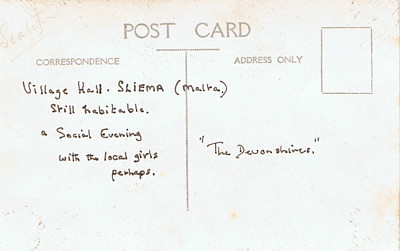 POST CARD
CORRESPONDENCE
ADDRESS ONLY
Village Hall. SLIEMA (Malta.)
Still habitable.
a Social Evening
with the local girls
perhaps.
"The Devonshires."